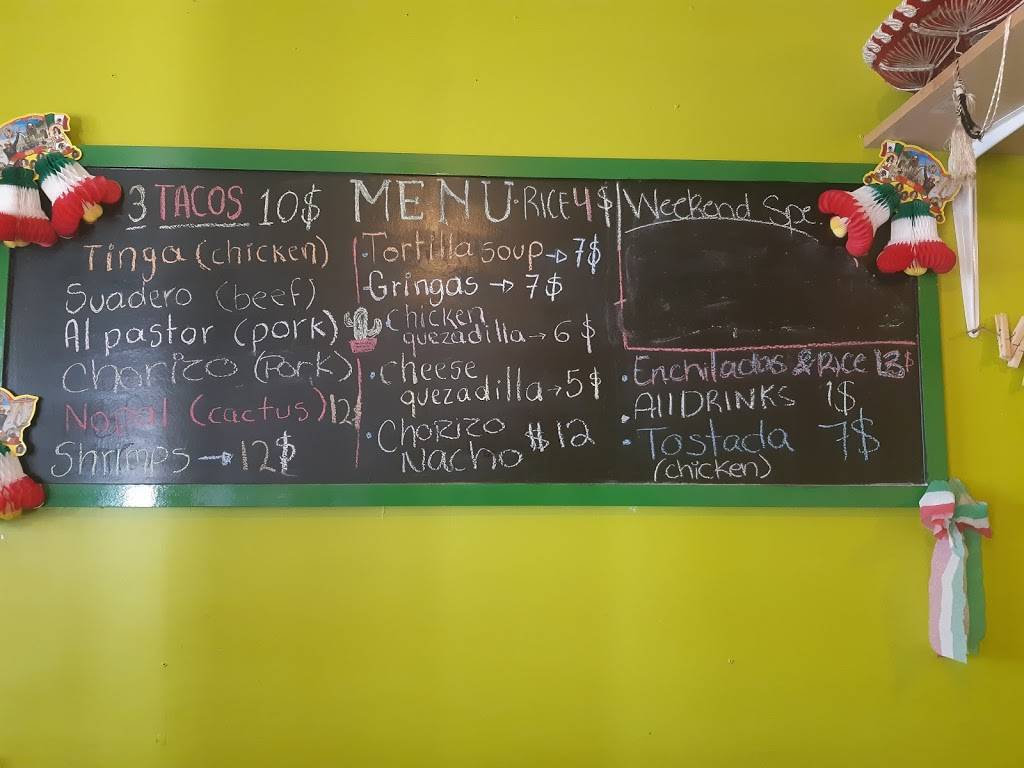 3 TACOS 10$
Tinga (chicken)
Suadero (beef)
Al pastor (pork)
Chorizo (Pork)
Nopal (cactus) 12
Shrimps → 12$
MENU · RICE 4$
· Tortilla soup → 7$
· Gringas → 7$
· chicken
quezadilla → 6 $
· cheese
quezadilla → 5$
· Chorizo $12
Nacho
Weekend Spe
· Enchiladas & RICE 13$
· All DRINKS 1$
· Tostada 7$
(chicken)